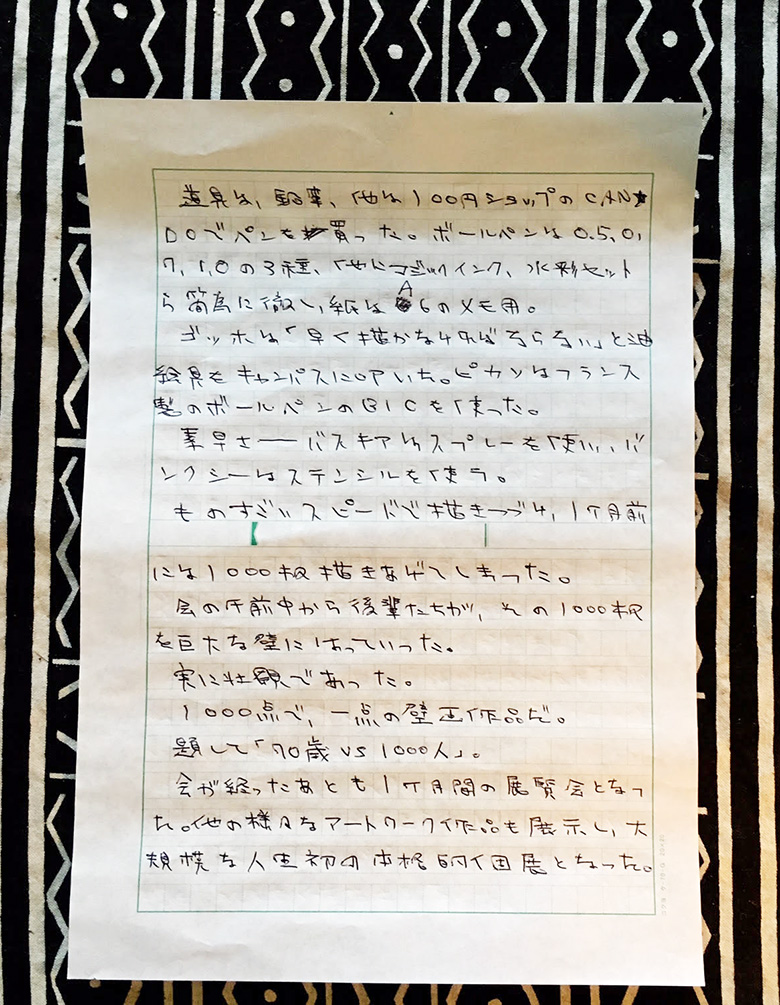 道具は、鉛筆、他は100円ショップのCAN★
DOでペンを買った。ボールペンは0.5、0,
7、1,0の3種、他にマジックインク、水彩セット
ら簡為に徹し、紙はA6のメモ用。
ゴッホは「早く描かなければならない」と油
絵具をキャンパスに吐いた。ピカソはフランス
製のボールペンのBICを使った。
素早さ──バスキアはスプレーを使い、バ
ンクシーはステンシルを使う。
ものすごいスピードで描きつづけ、1ケ月前
には1000枚描きあげてしまった。
会の午前中から後輩たちが、その1000枚
を巨大な壁にはっていった。
実に壮観であった。
1000点で、一点の壁画作品だ。
題して「70歳VS1000人」。
会が終ったあとも1ケ月間の展覧会となっ
た。他の様々なアートワーク作品も展示し、大
規模な人生初の本格的個展となった。